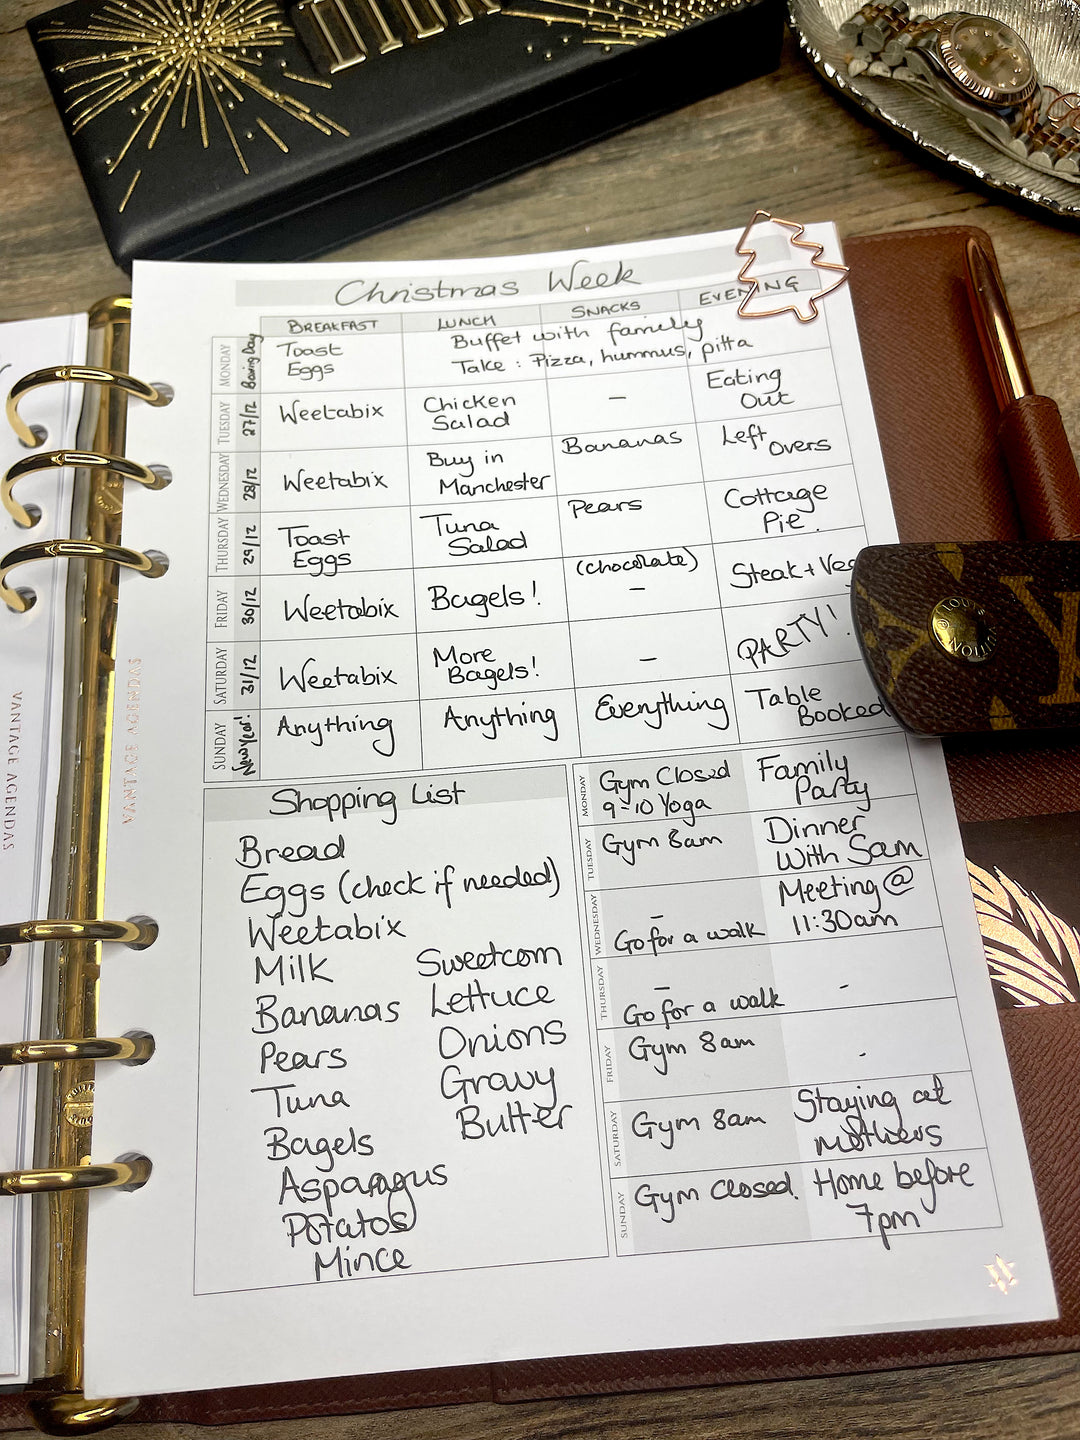 Christmas Week
BREAKFAST LUNCH SNACKS EVENING
MONDAY Boxing Day
Toast
Eggs
Buffet with family
Take : Pizza, hummus, pitta
TUESDAY 27/12
Weetabix
Chicken
Salad
–
Eating
Out
WEDNESDAY 28/12
Weetabix
Buy in
Manchester
Bananas
Left
Overs
THURSDAY 29/12
Toast
Eggs
Tuna
Salad
Pears
Cottage
Pie.
FRIDAY 30/12
Weetabix
Bagels!
(chocolate)
–
Steak + Veg
SATURDAY 31/12
Weetabix
More
Bagels!
–
PARTY!
SUNDAY New Year!
Anything
Anything
Everything
Table
Booked
Shopping List
Bread
Eggs (check if needed)
Weetabix
Milk
Bananas
Pears
Tuna
Bagels
Asparagus
Potatos
Mince
Sweetcorn
Lettuce
Onions
Gravy
Butter
MONDAY
Gym Closed
9-10 Yoga
Family
Party
TUESDAY
Gym 8am
Dinner
With Sam
WEDNESDAY
–
Go for a walk
Meeting @
11:30am
THURSDAY
–
Go for a walk
-
FRIDAY
Gym 8am
-
SATURDAY
Gym 8am
Staying at
mothers
SUNDAY
Gym Closed.
Home before
7pm
VANTAGE AGENDAS
VANTAGE AGENDAS